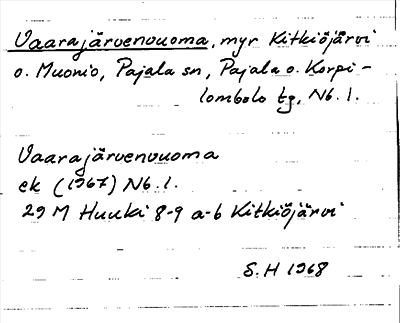 Vaarajärvenvuoma, myr Kitkiöjärvi
o. Muonio, Pajala sn, Pajala o. Korpi-
lombolo tg, Nb. l.
Vaarajärvenvuoma
ek (1967) Nb. l.
29 M Huuki 8-9 a-b Kitkiöjärvi
S.H 1968